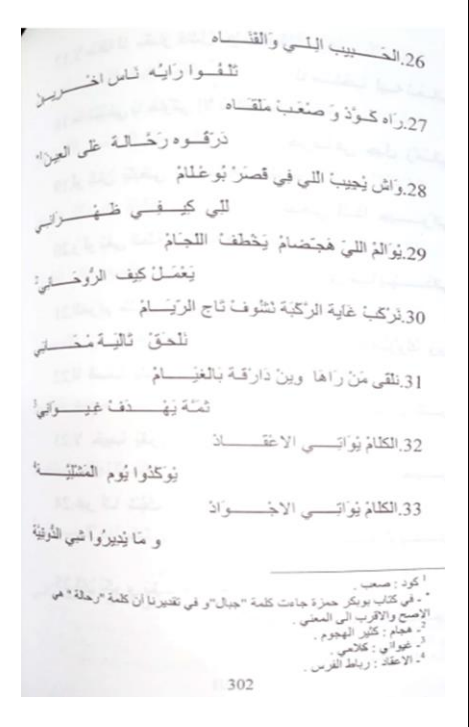 26.الحَـــــبيب اللِـــي وَالفْتَــــاه
تَلْـفُـوا رَايُـه نَـاس اخـــريـن
27.رَاه كَــوْدْ وَ صـنعَـبْ مَلْقَـــاه
دَرْقُــوه رَحَّـالَــة عْلى العِين*
28.وَاشْ يْجِيبْ اللي فِي قْصَرْ بُوعْلَامْ
للي كِيـــفِـــي ظَـهْـــــرَانِـي
29.يْوَالمْ اللي هَجَّضامْ يَخْطَفْ اللّجَــامْ
يَعْمَـــلْ كِيف الرُّوحَـــاني²
30.نَرْكَبْ غَاية الرَّكْبَة نْشُوفْ تَاج الرّيَــــامْ
نَلْحَـقْ تَالْيَــة مْحَـــــانِي
31.نلْقى مَنْ رَاهَا وينْ دَارْقَـة بَالغْيَـــــامْ
ثَمَّـة يَهْـــــدَفْ غِيــــوَانِي³
32.الكْلَامْ يْوَاتِـــــي الاعْقَـــــادْ
يُوكَدُوا يُوم المَشْلِيَّـــــة⁴
33.الكْلَامْ يْوَاتِــــي الاجْــــــوَادْ
و مَا يْدِيرُوا شي الدُّونِيَّة
¹ كود : صعب .
* - في كتاب بوبكر حمزة جاءت كلمة "جبال"و في تقديرنا أن كلمة "رحالة" هي
الاصح والاقرب الى المعنى .
²- هجام : كثير الهجوم .
³- غيواني : كلامي .
⁴- الاعقاد : رباط الفرس .
302